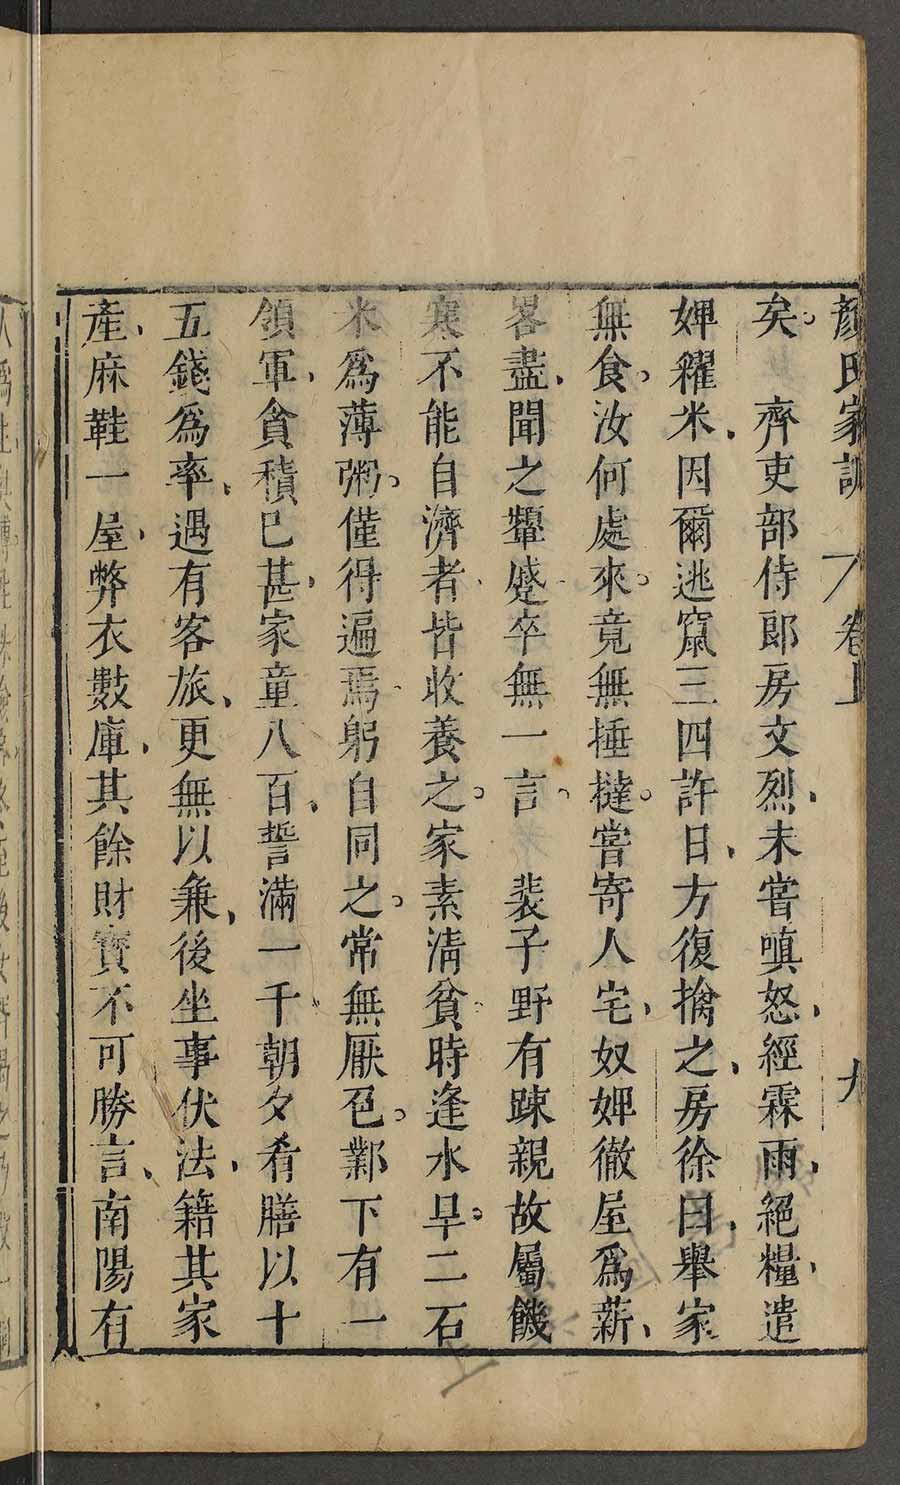 顏氏家訓 卷上 九
矣。 齊吏部侍郎房文烈、未嘗嗔怒、經霖雨、絕糧、遣
婢糴米、因爾逃竄三四許日、方復擒之、房徐曰、舉家
無食、汝何處來。竟無捶撻。嘗寄人宅、奴婢徹屋爲薪、
畧盡、聞之顰蹙卒無一言。 裴子野有踈親故屬饑
寒不能自濟者、皆收養之。家素淸貧、時逢水旱。二石
米爲薄粥。僅得遍焉、躬自同之。常無厭色。鄴下有一
領軍、貪積已甚、家童八百、誓滿一千、朝夕肴膳以十
五錢爲率、遇有客旅、更無以兼、後坐事伏法、籍其家
產、麻鞋一屋、弊衣數庫、其餘財寶不可勝言、南陽有